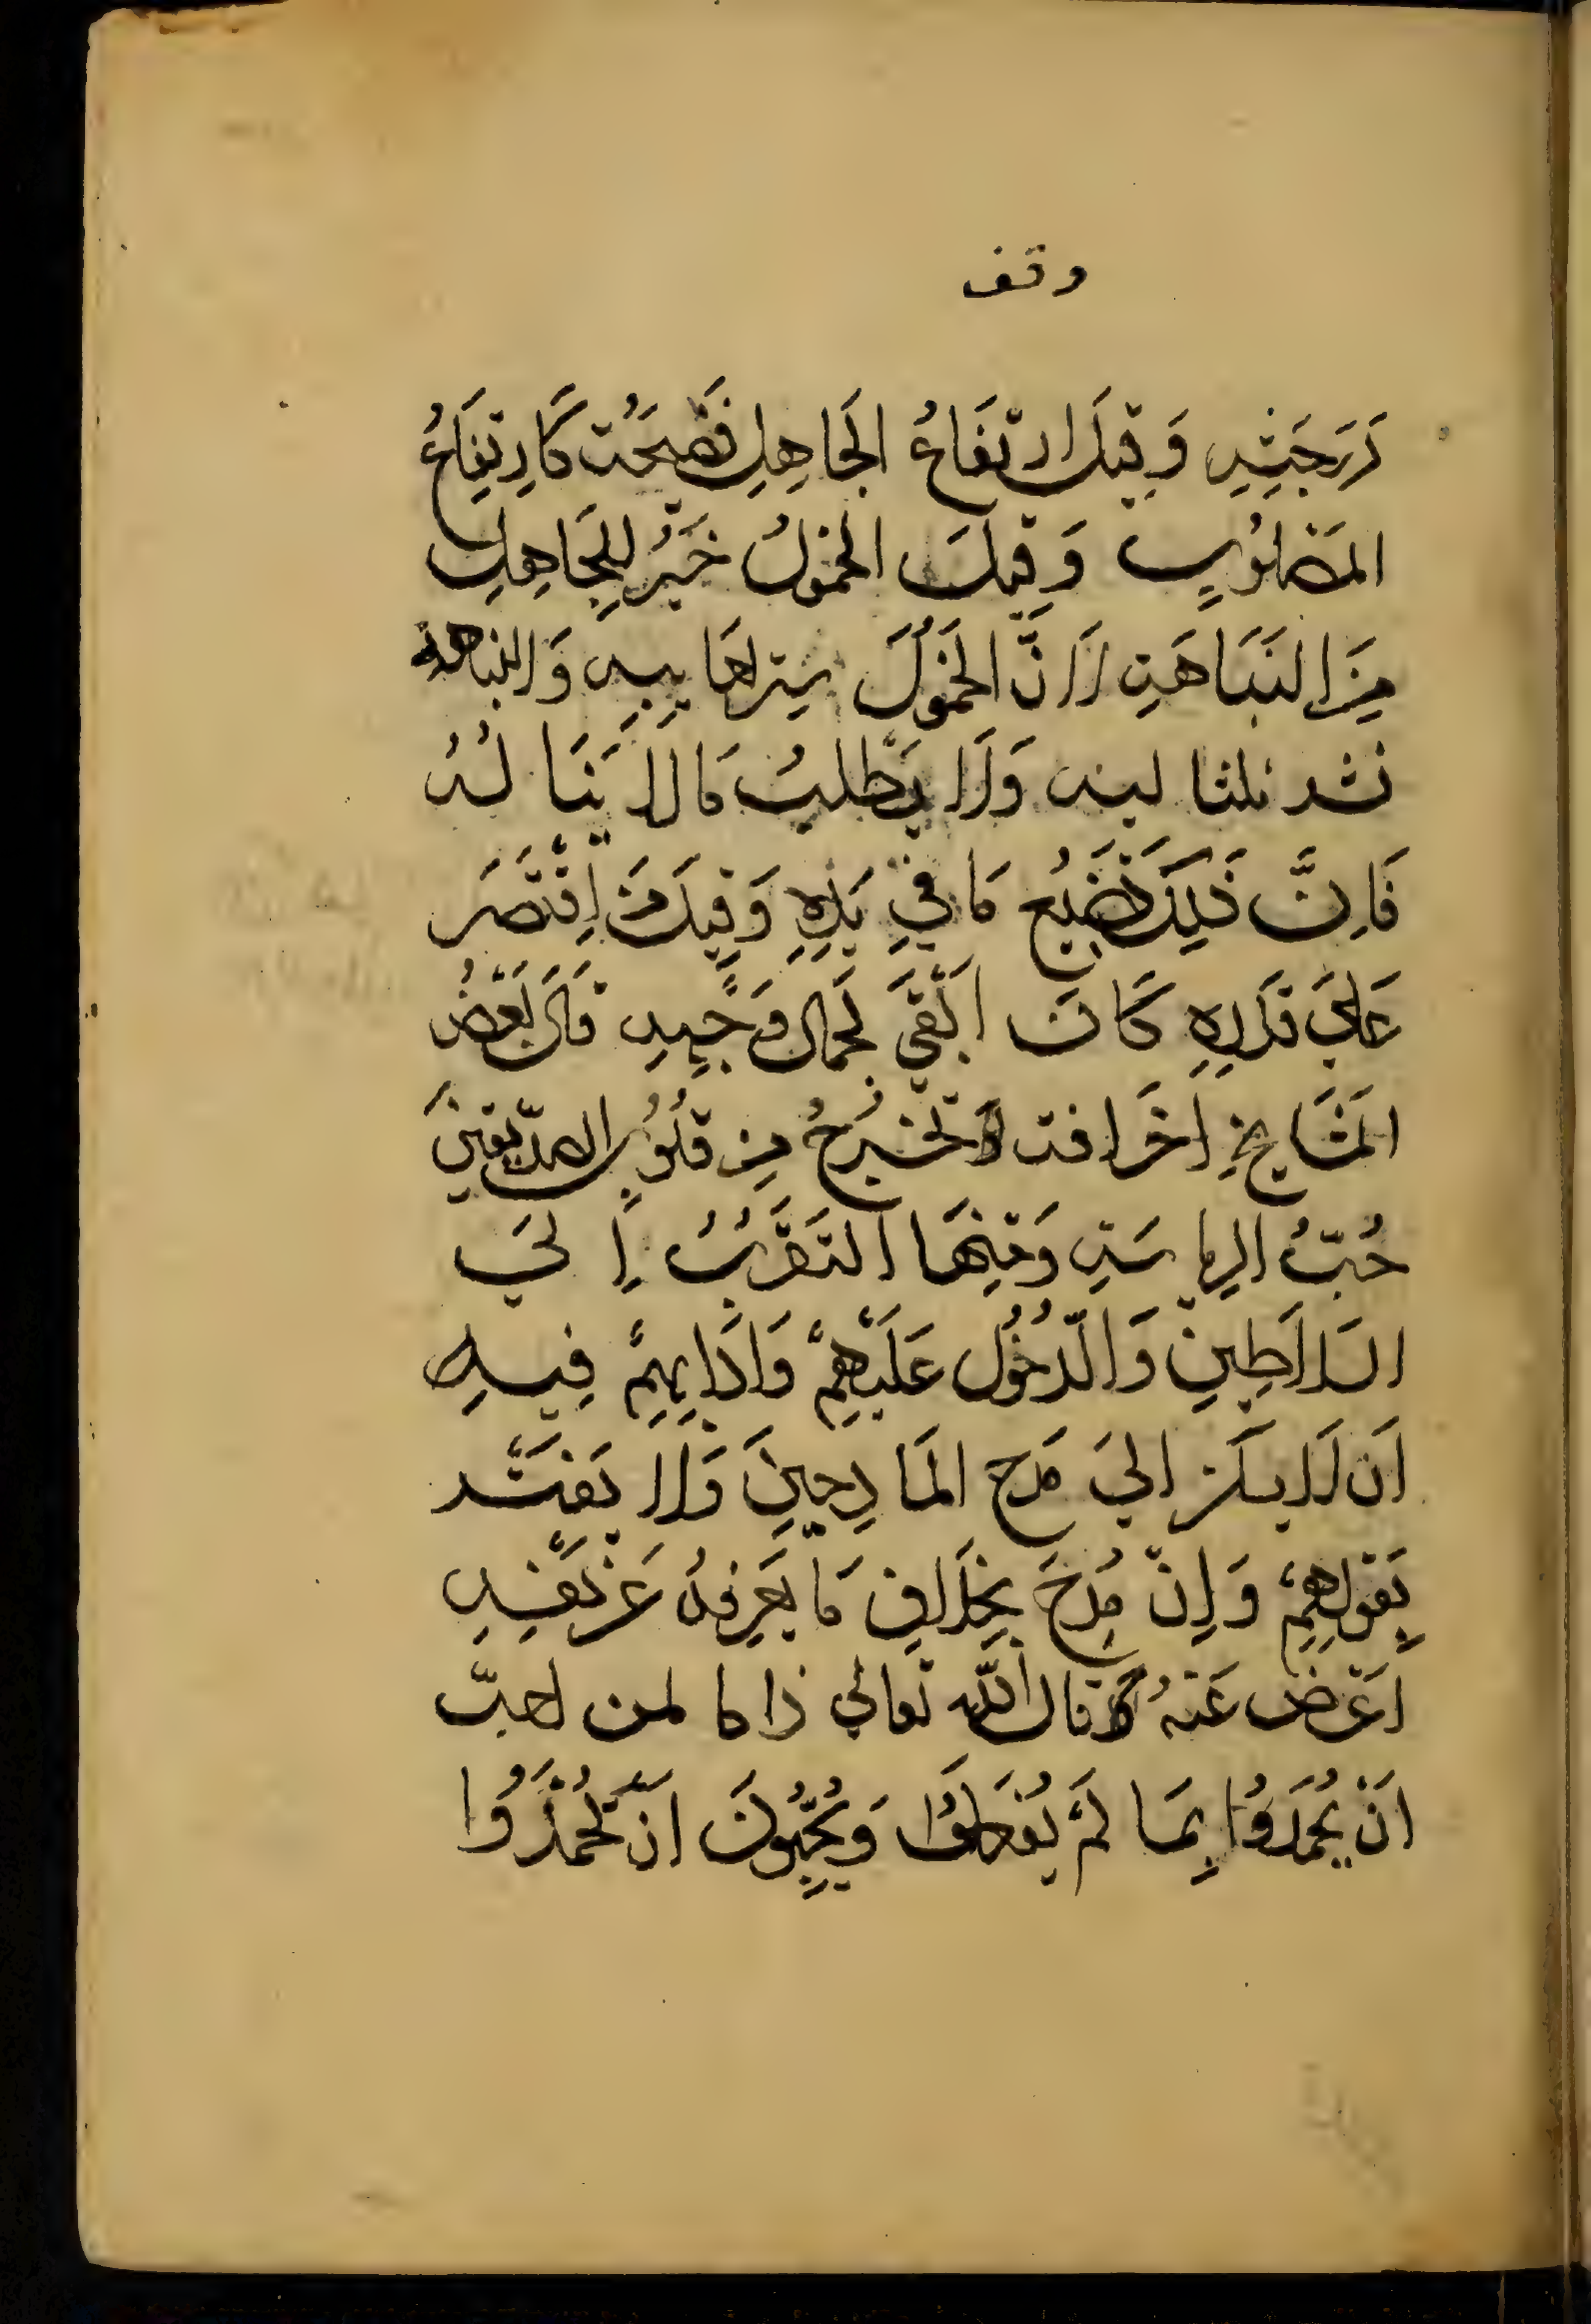 وقف
دَرَجَتِهِ وَقِيلَ ارتفَاعُ الجَاهِلِ فَضِيحَة كَارتِفَاعُ
المَصْلُوبِ وَقِيلَ الخمولُ خَيْرٌ لِلجَاهِلِ
مِنَ النَبَاهَةِ لاَنَّ الخمَوُلَ يستر معَايِبِهِ وَالنباهة
تنشر مثالبه وَلَا يَطلبُ مَا لا يَنَالُهُ
فَاِنَّ ذَلِكَ تَضْيَيُع مَا فِي يَدِهِ وَقِيلَ مَنْ اِقْتَصَر
عَلَي قَدرِهِ كَانَ اَبْقَي لجمال وَجْهِهِ قَالَ بَعْضُ
المَشَايِخِ اَخَرَ افت تخْرجُ مِن قلُوُبِ الصدّيقِينَ
حُبُّ الرياسَةِ وَمِنهَا التَقَرُّبُ اِلَي
السَلاَطِينِ وَالدُّخُول عَلَيْهِمْ وَادَابِهِمْ فِيهِ
اَن لَا يسكن اليَ مَدح المَادِحِينَ وَلا يَغتَر
بِقَولِهِمْ وَاِنْ مُدِحَ بِخِلَافِ مَا يَعْرِفهُ عَن نَفْسِهِ
اَعْرَض عَنْهُ قال اللَّه تعالي ذاما لمن احبّ
اَنْ يُحْمَدَوُا بِمَا لَمْ يَفْعَلوُا وَيُحِبُّونَ اَنْ يُحْمَدُوا